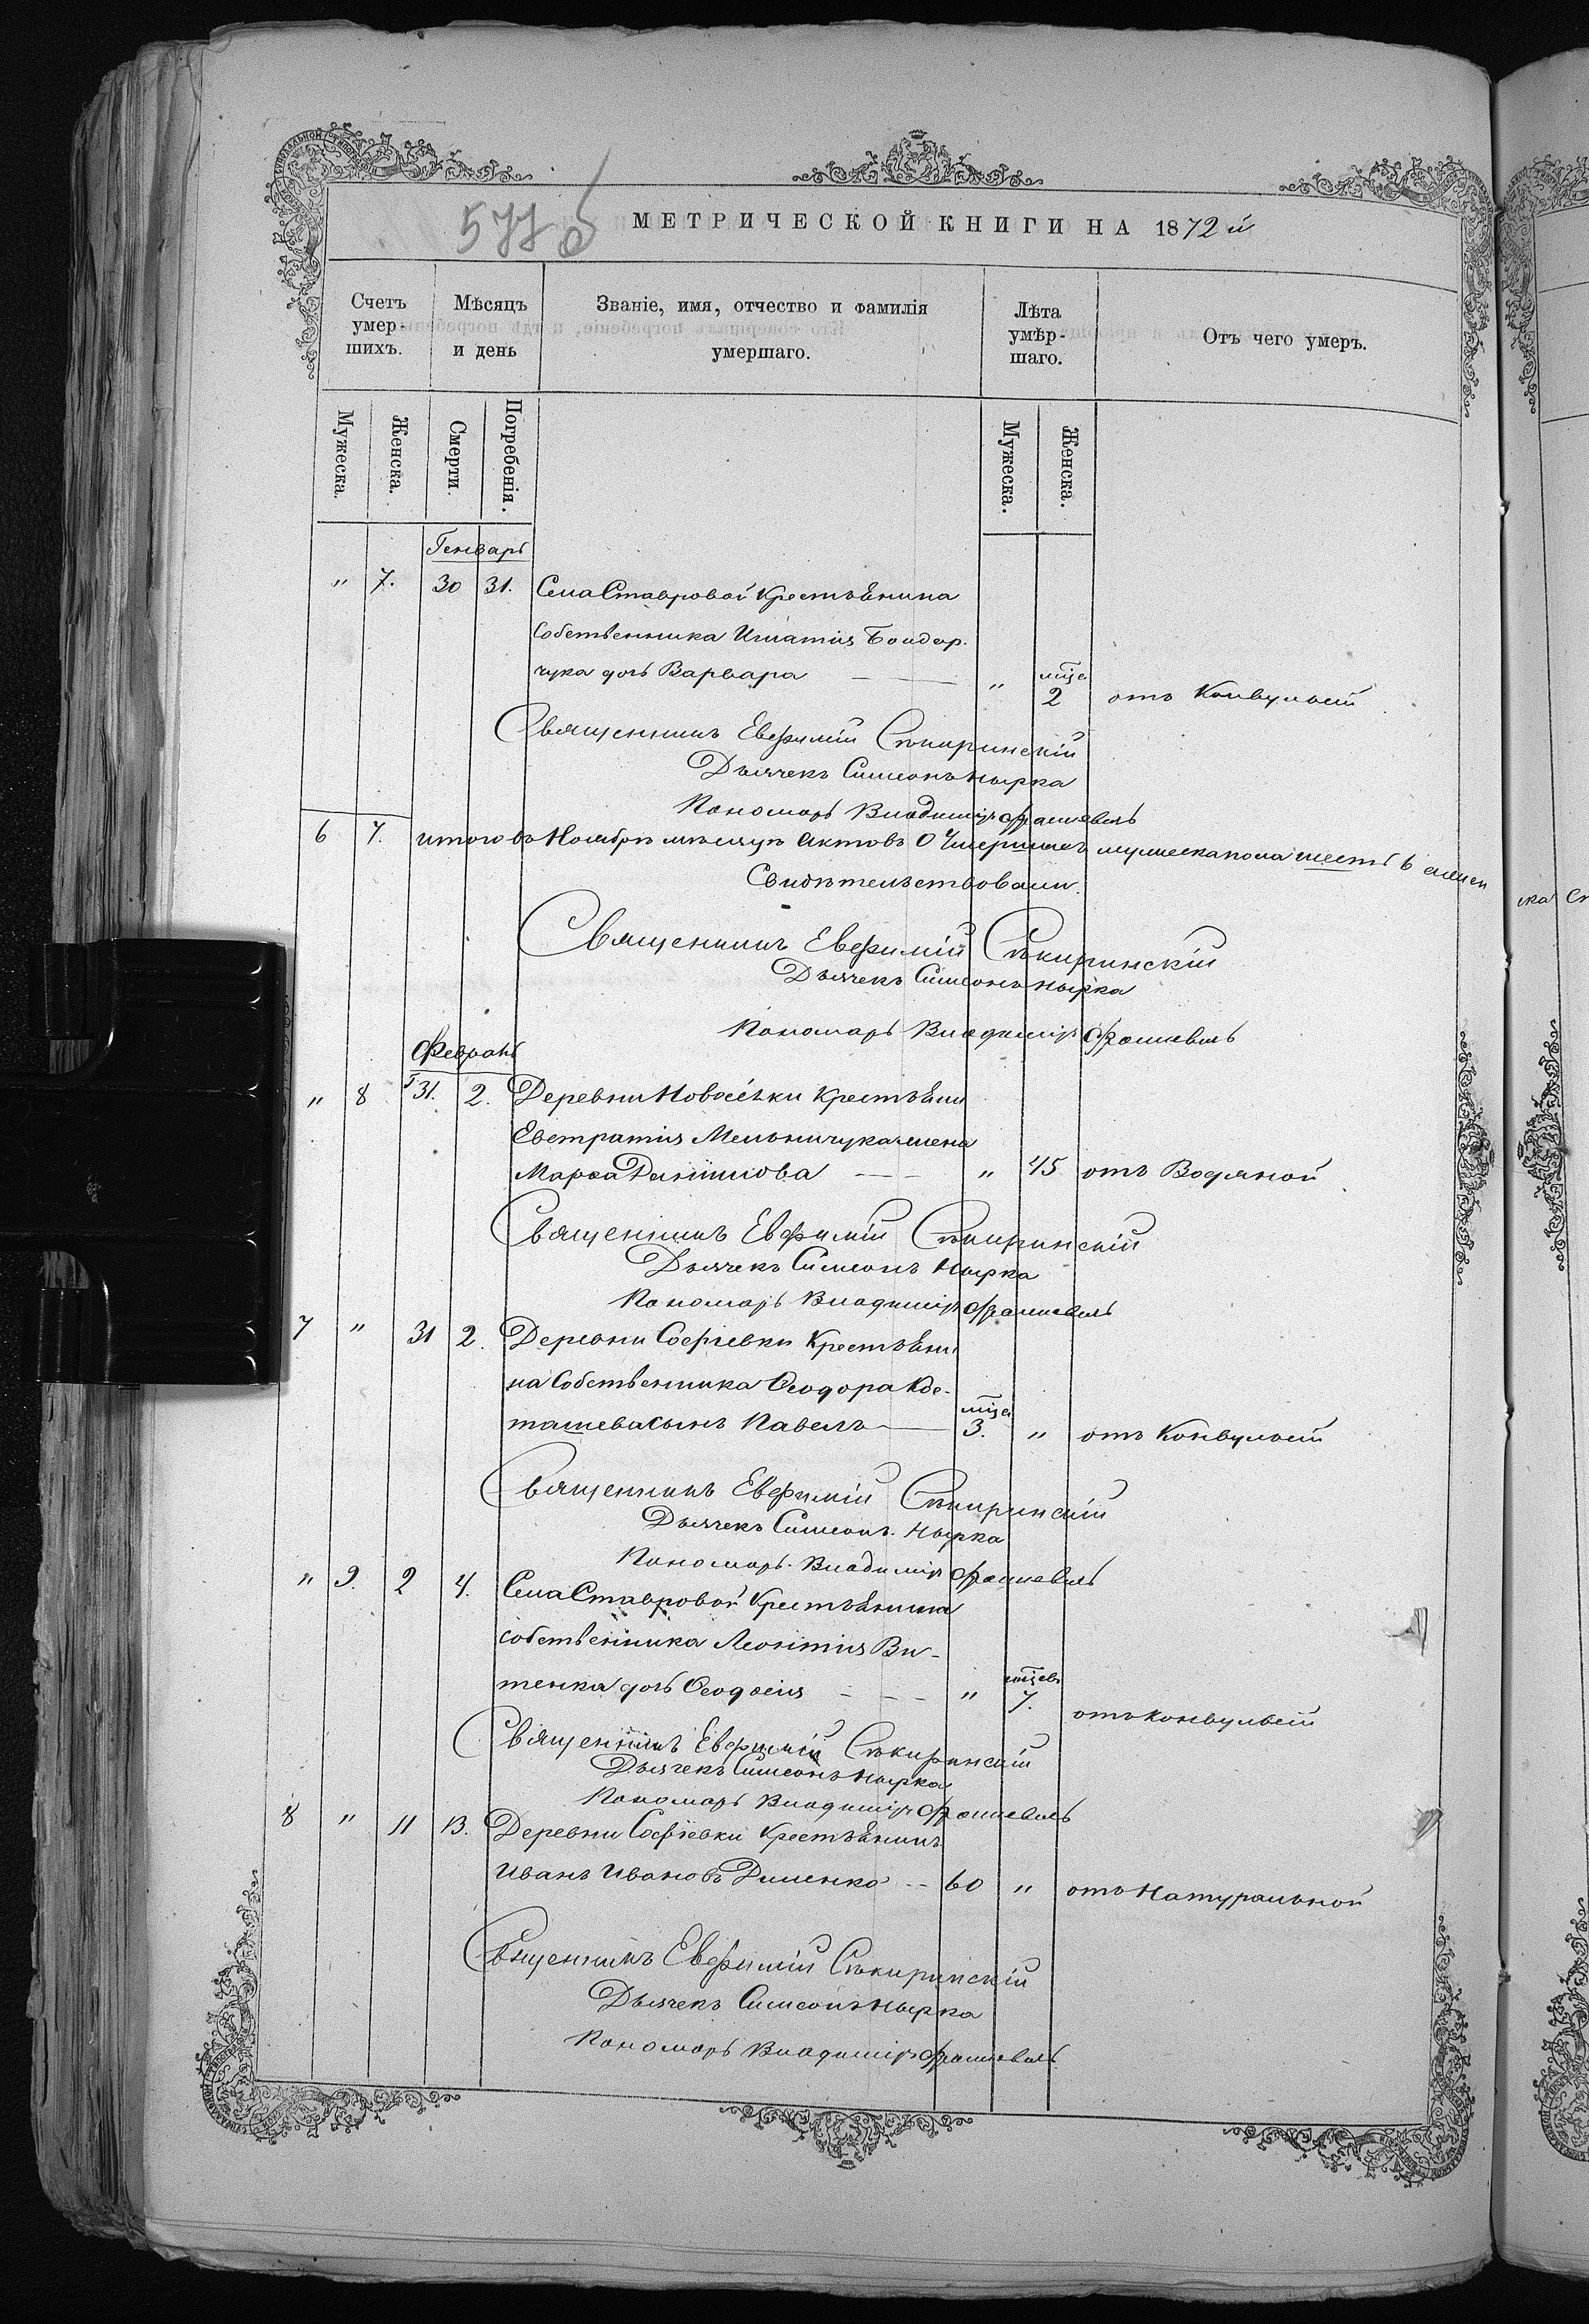 577 об
МЕТРИЧЕСКОЙ КНИГИ НА 1872 й
Счетъ умер-шихъ.
Мѣсяцъ и день
Званіе, имя, отчество и фамилія умершаго.
Лѣта умѣр-шаго.
Отъ чего умеръ.
Мужеска.
Женска.
Смерти.
Погребенія.
Мужеска.
Женска.
Генварь
" 7. 30 31. Села Ставровой крестьянина
собственника Игнатія Бондар.
чука дочь Варвара — " мѣс 2 отъ Конвульсій
Священникъ Евфимій Сѣкиринскій
Дьячекъ Симеонъ Нырка
Пономарь Владиміръ
6 7. итого въ Ноябрѣ мѣсяцѣ актовъ о Умершихъ мужеска пола шесть 6 женск
Свидѣтельствовали.
Священникъ Евфимій Сѣкиринскій
Дьячекъ Симеонъ Нырка
Пономарь Владиміръ
Февраль
" 8 31. 2. Деревни Новосёлки крестьяни
Евстратія Мельничука жена
Марѳа Даніилова — — " 45 отъ Водяной
Священникъ Евфимій Сѣкиринскій
Дьячекъ Симеонъ Нырка
Пономарь Владиміръ
7 " 31 2. Деревни Софіевки крестьяни
на собственника Ѳеодора
сынъ Павелъ — мѣс 3. " отъ Конвульсій
Священникъ Евфимій Сѣкиринскій
Дьячекъ Симеонъ Нырка
Пономарь Владиміръ
" 9. 2 4. Села Ставровой крестьянина
собственника Леонтія Ви-
тенка дочь Ѳеодосія - - - " 7. отъ конвульсій
Священникъ Евфимій Сѣкиринскій
Дьячекъ Симеонъ Нырка
Пономарь Владиміръ
8 " 11 13. Деревни Софіевки крестьянинъ
Иванъ Ивановъ Диленко - - 60 " отъ Натуральной
Священникъ Евфимій Сѣкиринскій
Дьячекъ Симеонъ Нырка
Пономарь Владиміръ